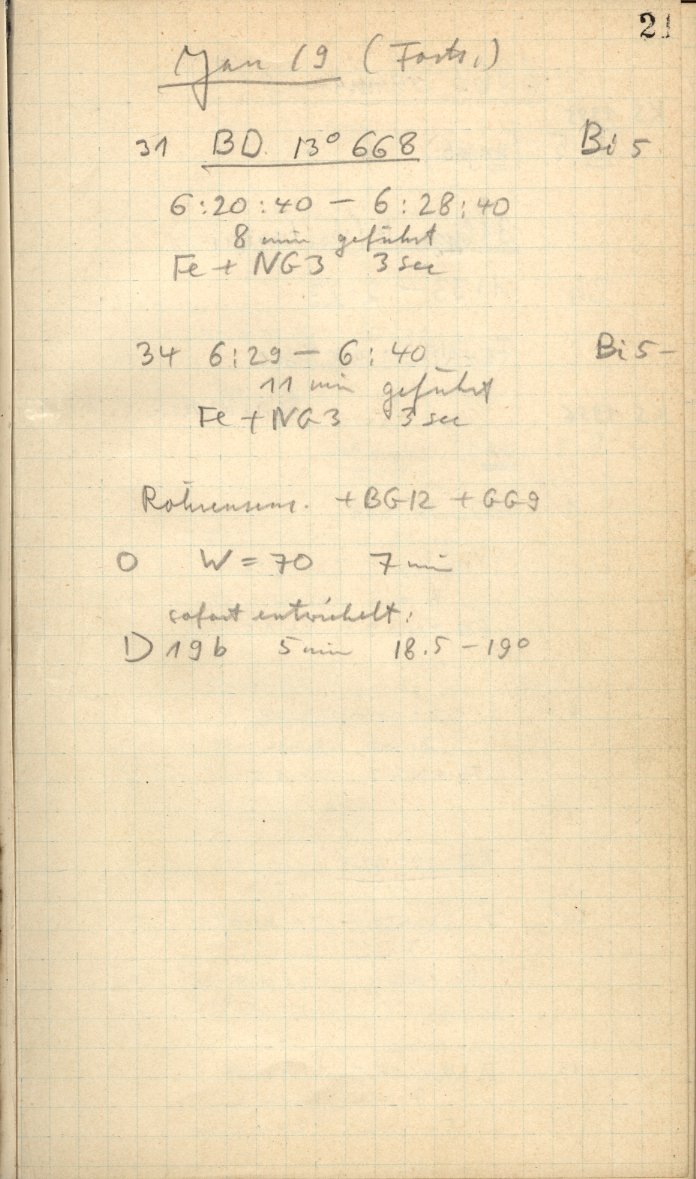 21
Jan 19 (Forts.)
31 BD 13° 668 Bi 5
6:20:40 – 6:28:40
8 min geführt
Fe + NG3 3 sec
34 6:29 – 6:40 Bi 5 –
11 min geführt
Fe + NG3 3 sec
Röhrensens. + BG12 + GG9
O W = 70 7 min
sofort entwickelt.
D 19b 5 min 18.5 – 19°